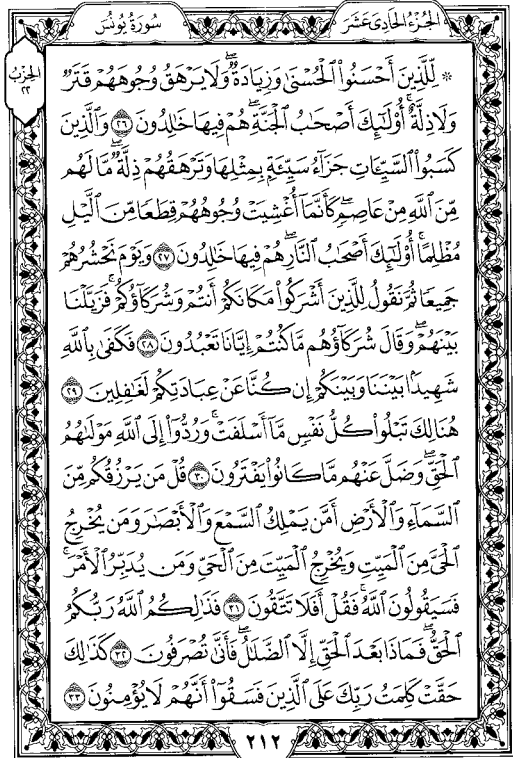 الجُزْءُ الحَادِىَ عَشَرَ
سُورَةُ يُونُسَ
الحِزْبُ
٢٢
۞ لِّلَّذِينَ أَحْسَنُوا۟ ٱلْحُسْنَىٰ وَزِيَادَةٌ ۖ وَلَا يَرْهَقُ وُجُوهَهُمْ قَتَرٌ
وَلَا ذِلَّةٌ ۚ أُو۟لَٰٓئِكَ أَصْحَٰبُ ٱلْجَنَّةِ ۖ هُمْ فِيهَا خَٰلِدُونَ ٢٦ وَٱلَّذِينَ
كَسَبُوا۟ ٱلسَّيِّـَٔاتِ جَزَآءُ سَيِّئَةٍۭ بِمِثْلِهَا وَتَرْهَقُهُمْ ذِلَّةٌ ۖ مَّا لَهُم
مِّنَ ٱللَّهِ مِنْ عَاصِمٍ ۖ كَأَنَّمَآ أُغْشِيَتْ وُجُوهُهُمْ قِطَعًا مِّنَ ٱلَّيْلِ
مُظْلِمًا ۚ أُو۟لَٰٓئِكَ أَصْحَٰبُ ٱلنَّارِ ۖ هُمْ فِيهَا خَٰلِدُونَ ٢٧ وَيَوْمَ نَحْشُرُهُمْ
جَمِيعًا ثُمَّ نَقُولُ لِلَّذِينَ أَشْرَكُوا۟ مَكَانَكُمْ أَنتُمْ وَشُرَكَآؤُكُمْ ۚ فَزَيَّلْنَا
بَيْنَهُمْ ۖ وَقَالَ شُرَكَآؤُهُم مَّا كُنتُمْ إِيَّانَا تَعْبُدُونَ ٢٨ فَكَفَىٰ بِٱللَّهِ
شَهِيدًۢا بَيْنَنَا وَبَيْنَكُمْ إِن كُنَّا عَنْ عِبَادَتِكُمْ لَغَٰفِلِينَ ٢٩
هُنَالِكَ تَبْلُوا۟ كُلُّ نَفْسٍ مَّآ أَسْلَفَتْ ۚ وَرُدُّوٓا۟ إِلَى ٱللَّهِ مَوْلَىٰهُمُ
ٱلْحَقِّ ۖ وَضَلَّ عَنْهُم مَّا كَانُوا۟ يَفْتَرُونَ ٣٠ قُلْ مَن يَرْزُقُكُم مِّنَ
ٱلسَّمَآءِ وَٱلْأَرْضِ أَمَّن يَمْلِكُ ٱلسَّمْعَ وَٱلْأَبْصَٰرَ وَمَن يُخْرِجُ
ٱلْحَىَّ مِنَ ٱلْمَيِّتِ وَيُخْرِجُ ٱلْمَيِّتَ مِنَ ٱلْحَىِّ وَمَن يُدَبِّرُ ٱلْأَمْرَ ۚ
فَسَيَقُولُونَ ٱللَّهُ ۚ فَقُلْ أَفَلَا تَتَّقُونَ ٣١ فَذَٰلِكُمُ ٱللَّهُ رَبُّكُمُ
ٱلْحَقُّ ۖ فَمَاذَا بَعْدَ ٱلْحَقِّ إِلَّا ٱلضَّلَٰلُ ۖ فَأَنَّىٰ تُصْرَفُونَ ٣٢ كَذَٰلِكَ
حَقَّتْ كَلِمَتُ رَبِّكَ عَلَى ٱلَّذِينَ فَسَقُوٓا۟ أَنَّهُمْ لَا يُؤْمِنُونَ ٣٣
٢١٢